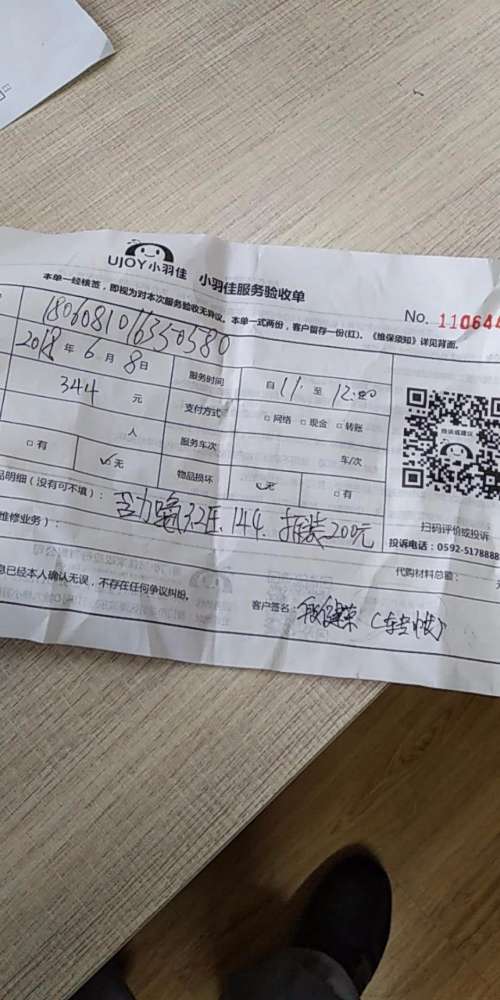 UJOY小羽佳 小羽佳服务验收单
本单一经核签，即视为对本次服务验收无异议。本单一式两份，客户留存一份(红)。《维保须知》详见背面。
No. 110644
1806081016350580
2018 年 6 月 8 日 服务时间 自 11: 至 12:00
344 元 支付方式 □网络 □现金 □转账
人 服务车次 车/次
□有 ☑无 物品损坏 ☑无 □有
微谈或建议
扫码评价或投诉
投诉电话：0592-5178888
品明细（没有可填）： 144. 拆装200元
维修业务）：
代购材料总额： 元
息已经本人确认无误，不存在任何争议纠纷。
客户签名：